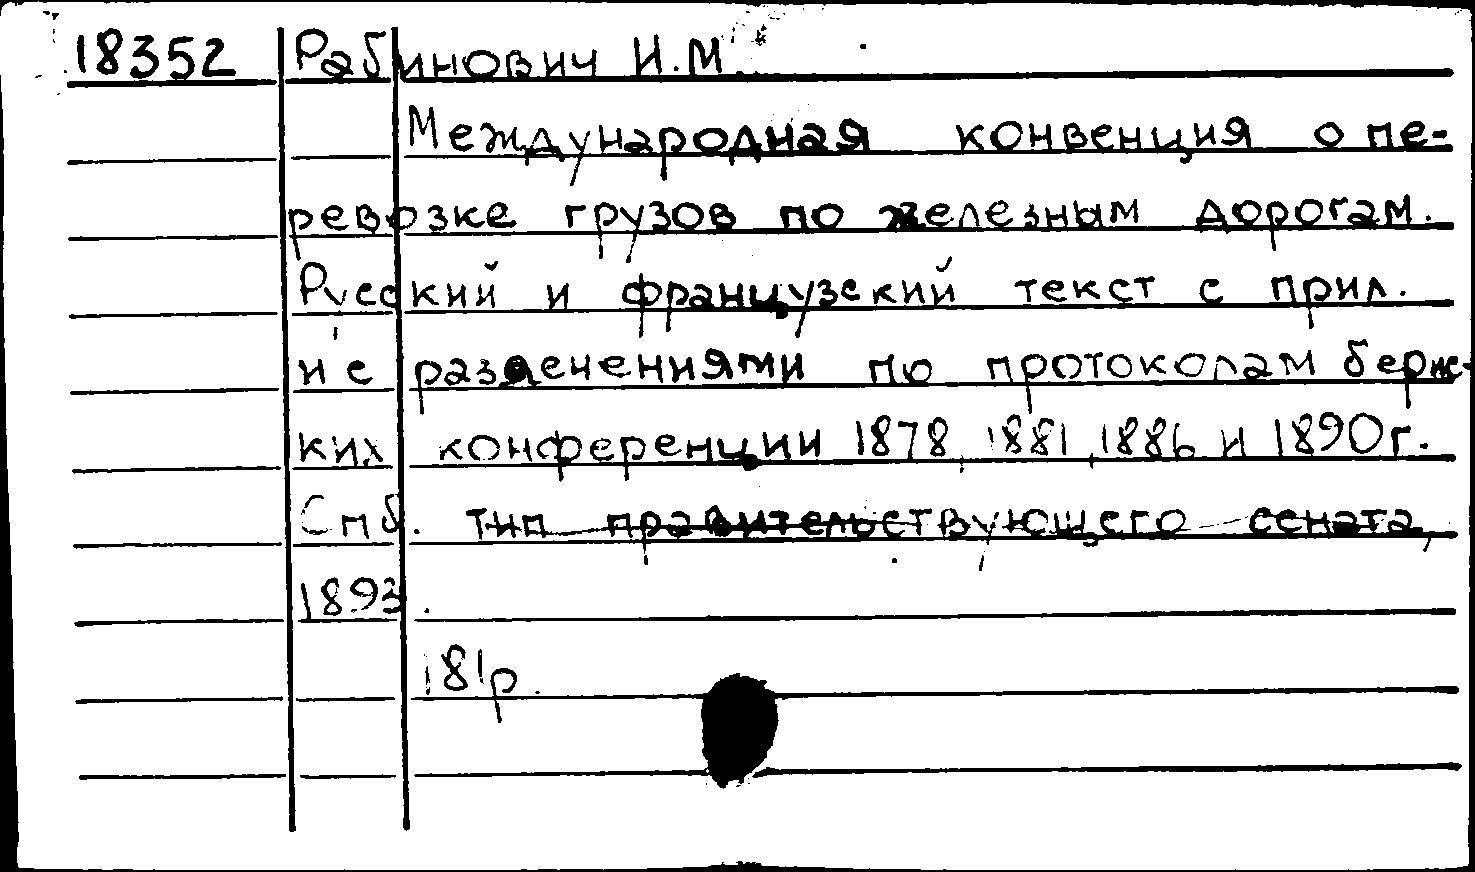 18352 Рабинович И.М.
Международная конвенция о пе-
ревозке грузов по железным дорогам.
Русский и французский текст с прил.
и с разъяснениями по протоколам бернс-
ких конференции 1878, 1881, 1886 и 1890г.
Спб. тип правительствующего сената,
1893.
181р.